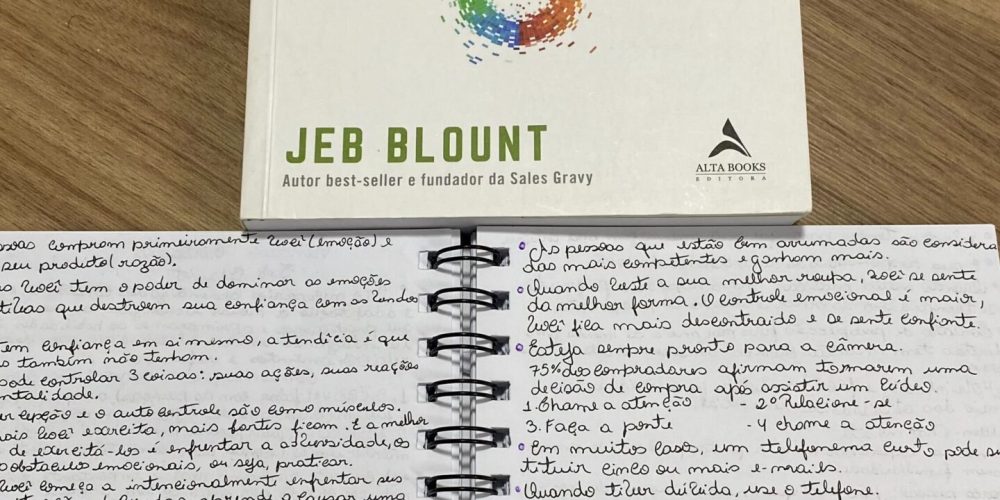 JEB BLOUNT
Autor best-seller e fundador da Sales Gravy
ALTA BOOKS
EDITORA
compram primeiramente você (emoção) e
seu produto (razão).
você tem o poder de dominar as emoções
que destroem sua confiança com os
tem confiança em si mesmo, a tendicia é que
também não tenham.
pode controlar 3 coisas: suas ações, suas reações
e o autocontrole são como músculos.
você exercita, mais fortes ficam. E a melhor
de exercitá-los é enfrentar a adversidade, os
obstáculos emocionais, ou seja, praticar.
começa a intencionalmente enfrentar seus
• As pessoas que estão bem arrumadas são considera
das mais competentes e ganham mais.
• Quando veste a sua melhor roupa, você se sente
da melhor forma. O controle emocional é maior,
você fica mais descontraido e se sente confiante.
• Esteja sempre pronto para a câmera.
75% dos compradores afirmam tormarem uma
decisão de compra após assistir um vídeo.
1. Chame a atenção - 2º Relacione-se
3. Faça a ponte - 4 chame a atenção
• Em muitos casos, um telefonema curto pode
tituir cinco ou mais e-mails.
• Quando tiver dúvida, use o telefone.